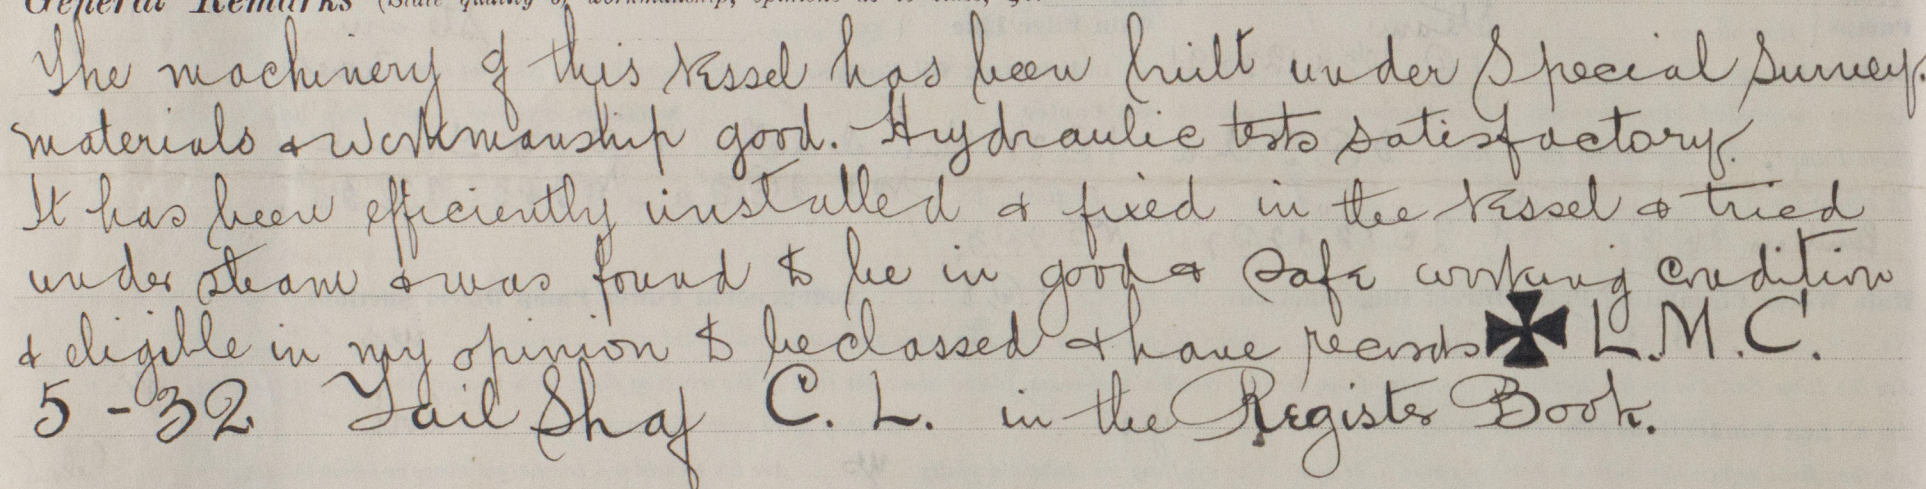 General Remarks (State quality of workmanship, opinions as to class, &c.
The machinery of this Vessel has been built under Special Survey.
materials & workmanship good. Hydraulic tests satisfactory.
It has been efficiently installed & fixed in the Vessel & tried
under steam & was found to be in good & safe working condition
& eligible in my opinion to be classed & have records ✠ L.M.C.
5-32 Tail Shaf C. L. in the Register Book.